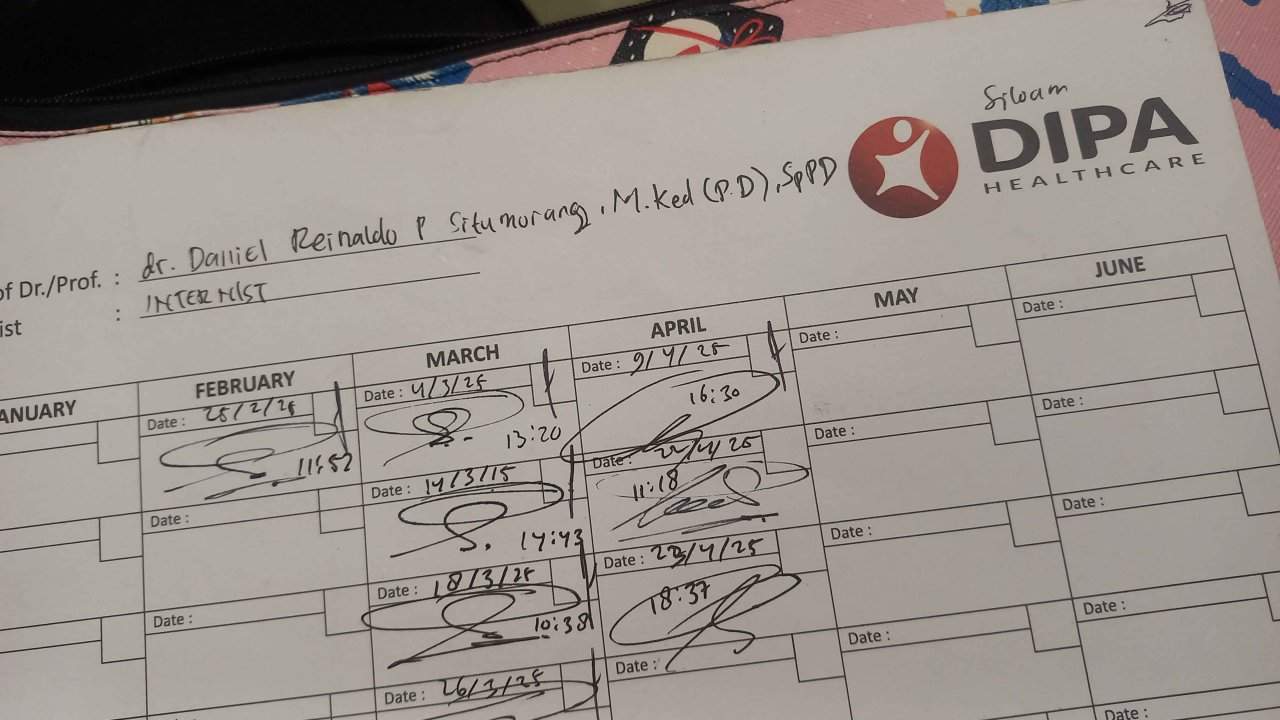 Siloam
DIPA
HEALTHCARE
of Dr./Prof. : dr. Danniel Reinaldo P Situmorang, M.Ked (P.D), SpPD
ist : INTERNIST
ANUARY FEBRUARY MARCH APRIL MAY JUNE
Date : 25/2/25 Date : 4/3/25 Date : 9/4/25 Date : Date :
11:52 13:20 16:30
Date : Date : 14/3/15 Date : 22/4/25 Date : Date :
14:43 11:18
Date : Date : 18/3/25 Date : 23/4/25 Date : Date :
10:38 18:37
Date : 26/3/25 Date : Date : Date :
Date :